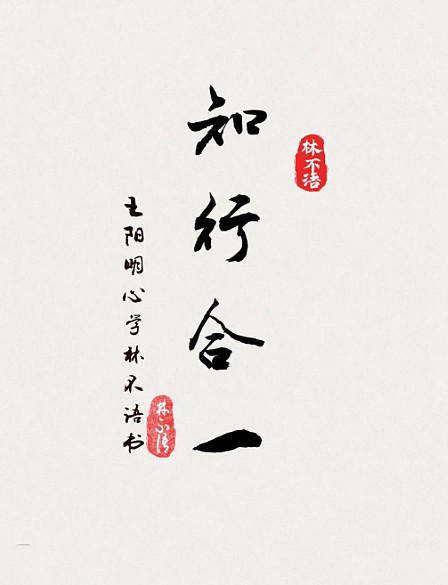 林不语
知行合一
王阳明心学林不语书
林不语